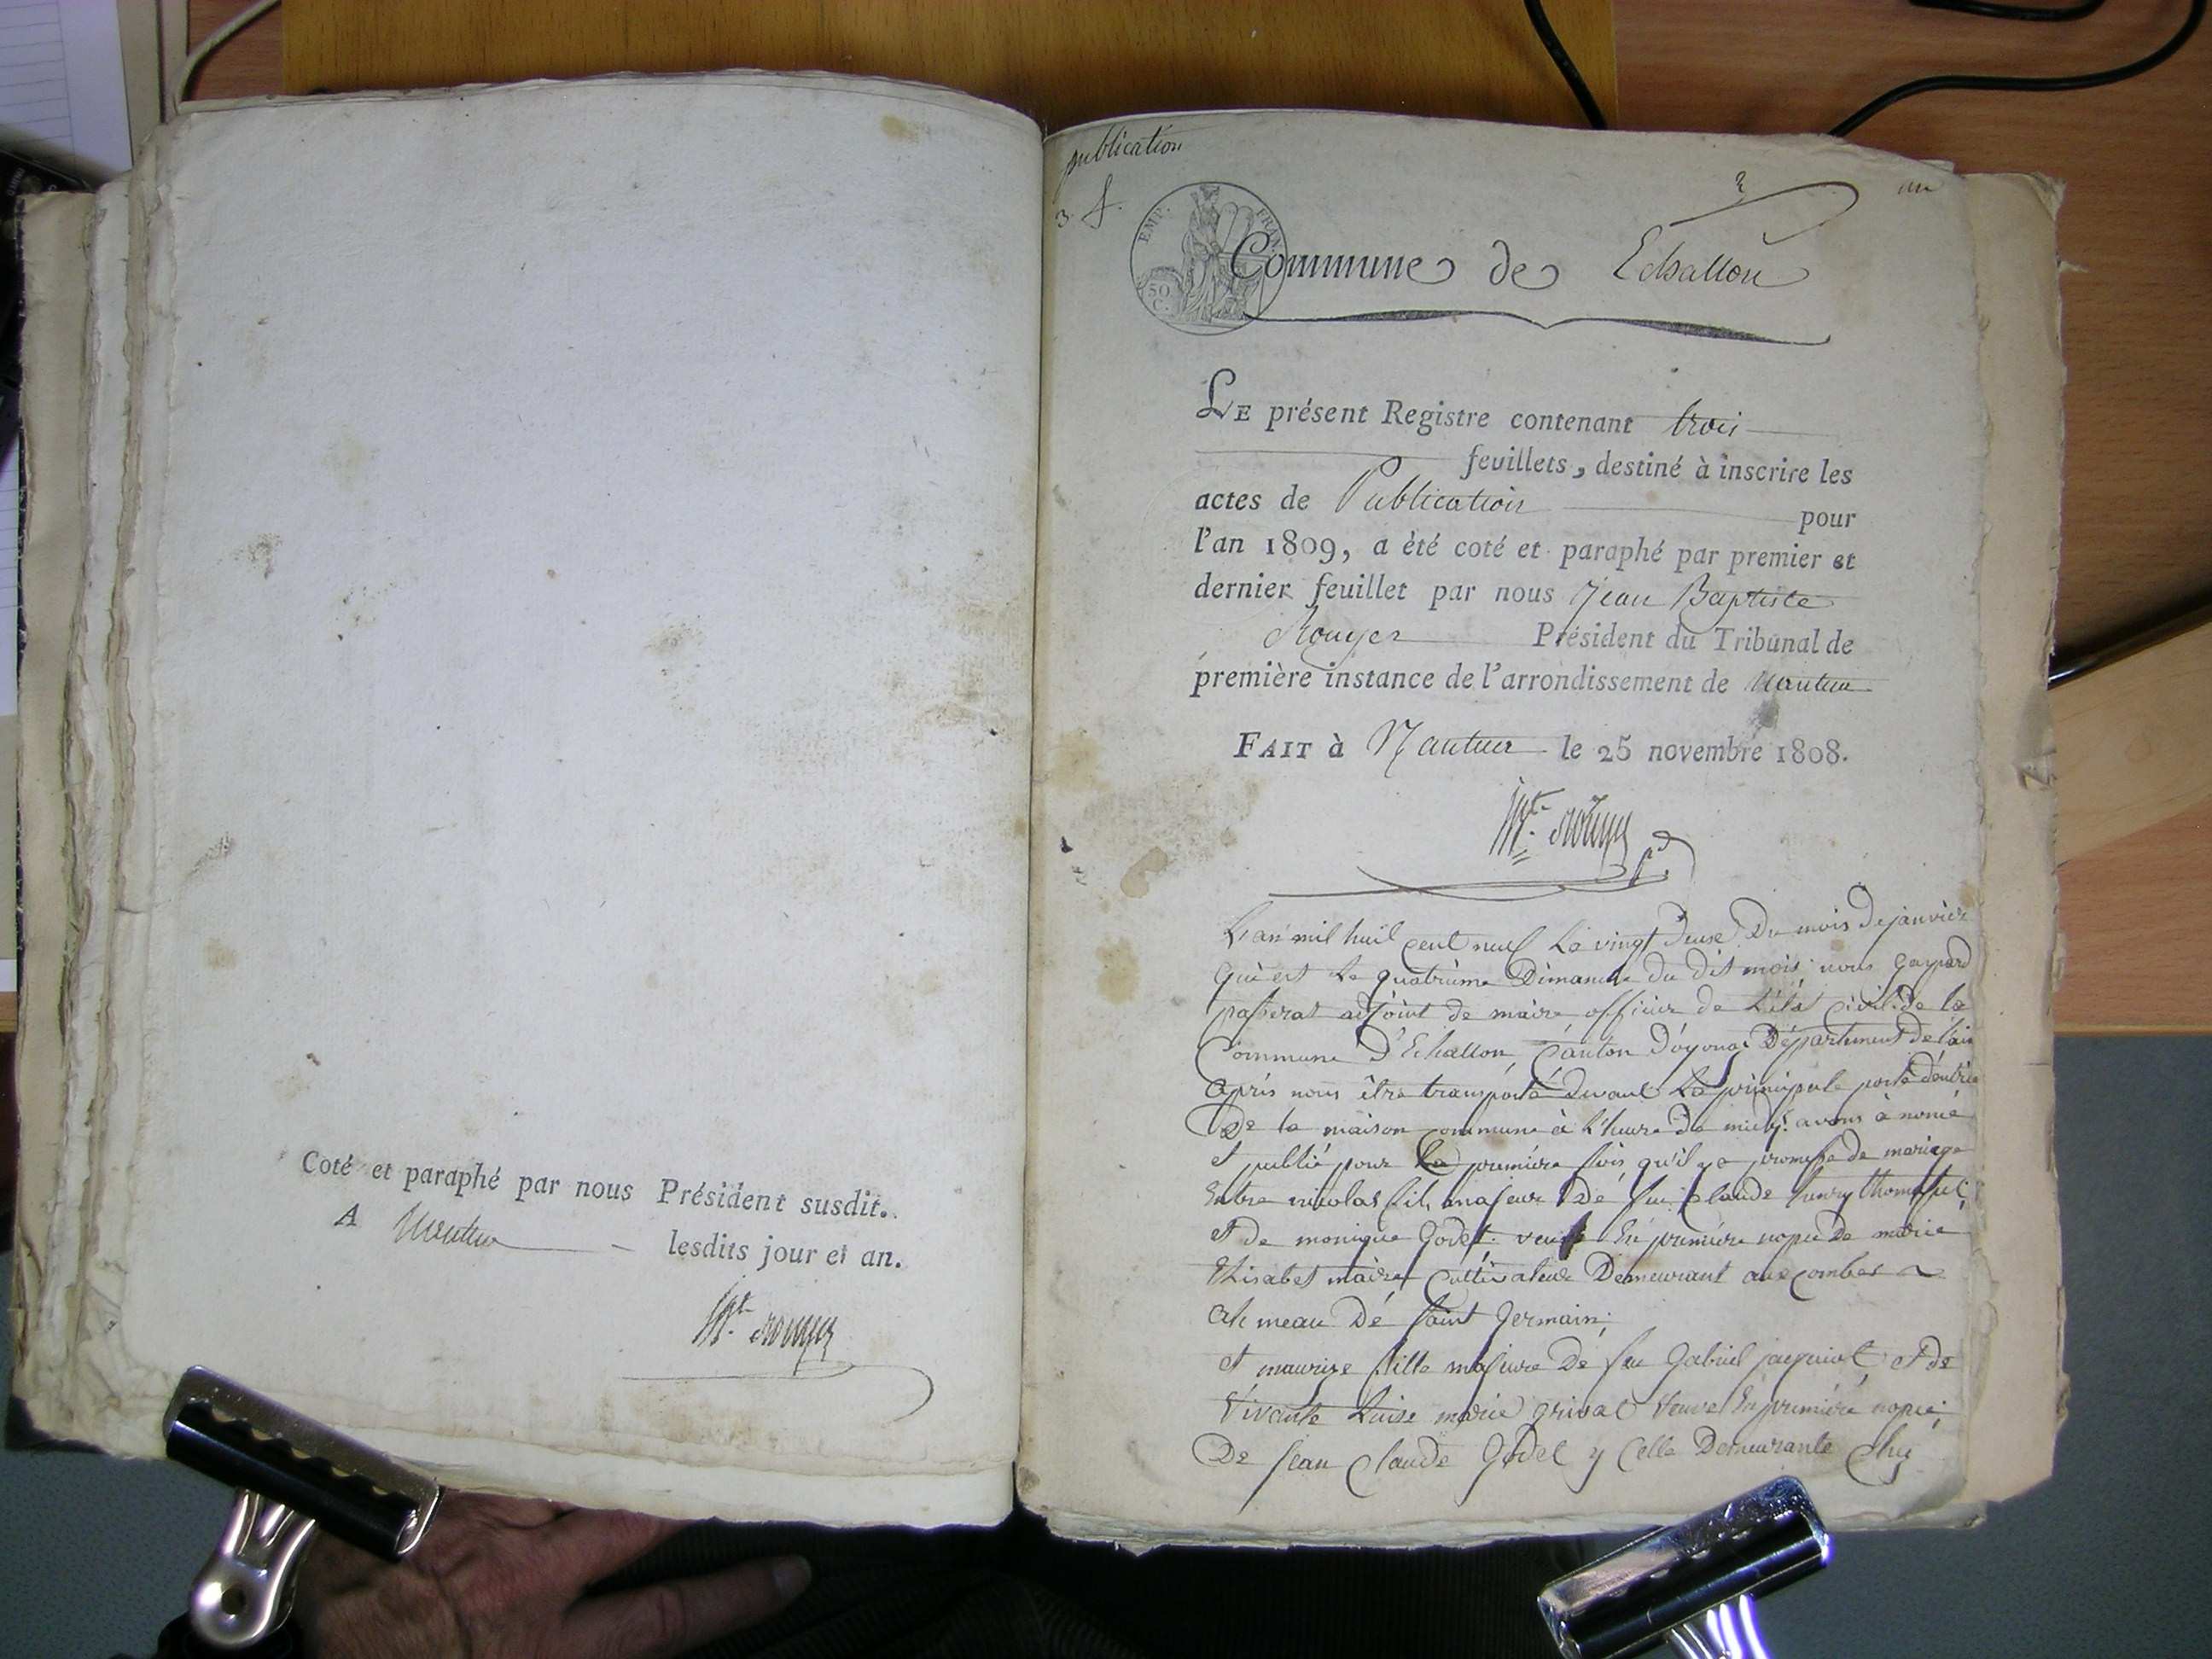 Coté et paraphé par nous Président susdit.
A Nantua lesdits jour et an.
publication
3. f.
EMP. FRAN.
50 C.
Commune de Echallon
LE présent Registre contenant trois
feuillets, destiné à inscrire les
actes de Publication pour
l'an 1809, a été coté et paraphé par premier et
dernier feuillet par nous Jean Baptiste
Rouyer Président du Tribunal de
première instance de l'arrondissement de Nantua
FAIT à Nantua le 25 novembre 1808.
L'an mil huit cent neuf Le vingt deuse Du mois De janvier
qui est Le quatrieme Dimanche du dit mois nous gaspard
passerat adjoint de maire officier de L'état civil de la
Commune D'Echallon Canton D'oyonax Département de l'ain
après nous être transporté Devant La principale porte d'entrée
De la maison commune à L'heure De midy avons à noncé
et publié pour La premiere fois qu'il y a promesse de mariage
Entre nicolas fils majeur De feu Claude henry thomasset
et de monique Godet veuf En première nopce De marie
Elisabet maire Cultivateur Demeurant aux combes
ah meau De saint Germain,
et maurize fille majeure De feu Gabriel jacquiot et de
Vivante Luise marie grivat veuve En premiere nopce
De jean Claude Godet y Celle Demeurante